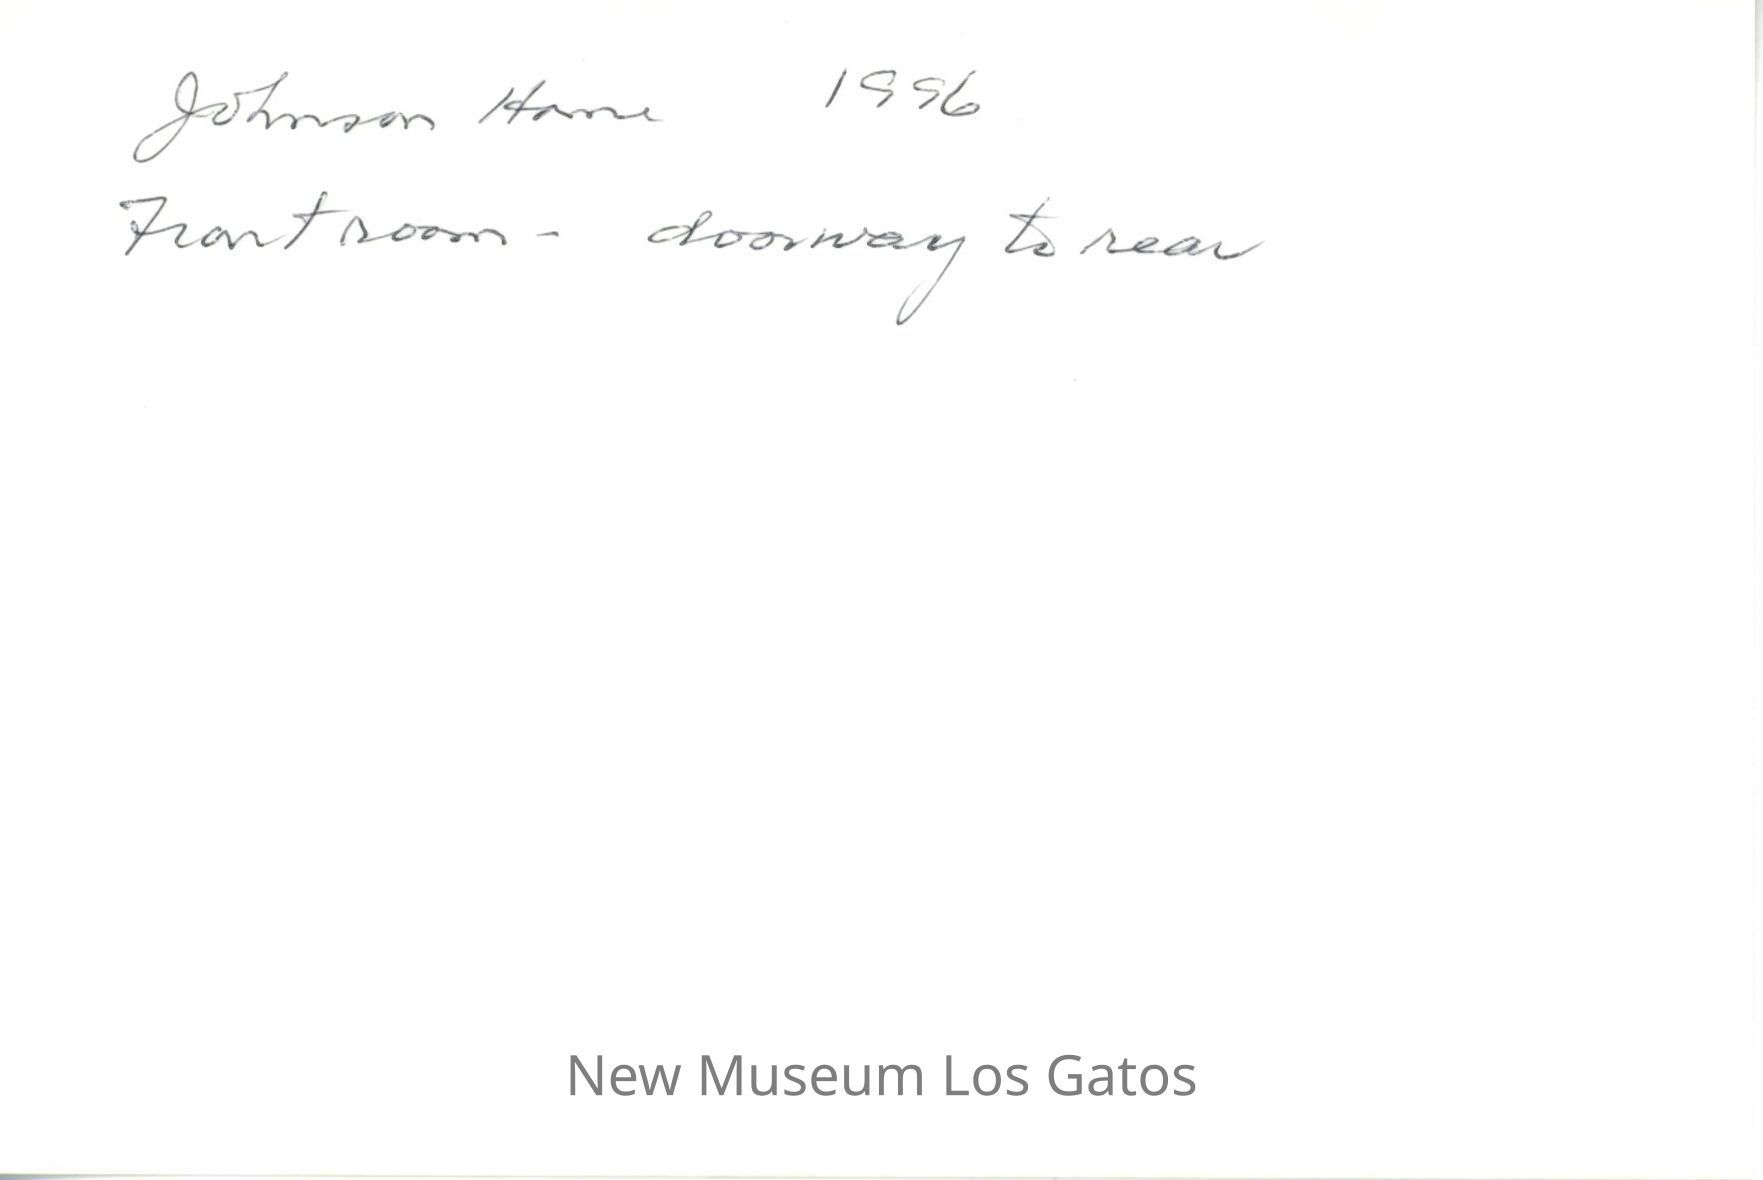 Johnson Home 1996
Front room - doorway to rear
New Museum Los Gatos